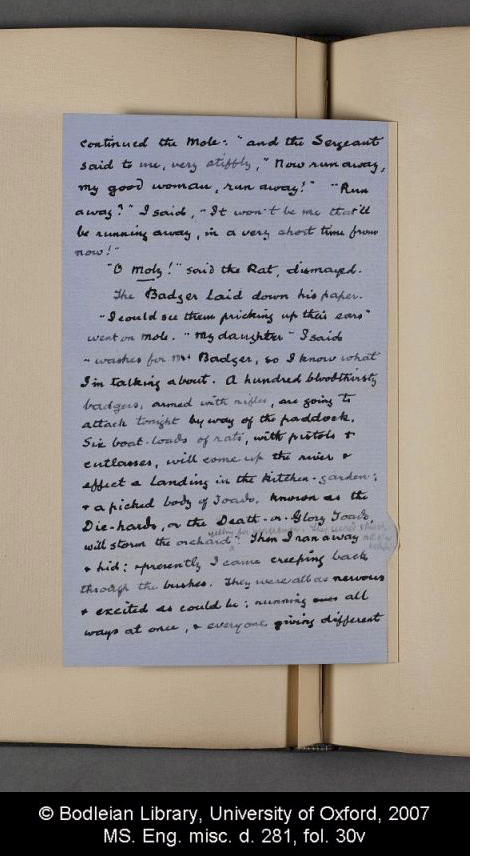 continued the Mole: "and the Sergeant
said to me, very stiffly, "Now run away,
my good woman, run away!" "Run
away?" I said, "It won't be me that'll
be running away, in a very short time from
now!"
"O Moly!" said the Rat, dismayed.
The Badger laid down his paper.
"I could see them pricking up their ears"
went on Mole. "My daughter" I said
"washes for Mr Badger, so I know what
I'm talking about. A hundred bloodthirsty
badgers, armed with rifles, are going to
attack tonight by way of the paddock.
Six boat-loads of rats, with pistols &
cutlasses, will come up the river &
effect a landing in the kitchen-garden;
& a picked body of Toads, known as the
Die-hards, or the Death-or-Glory Toads,
yelling for vengeance.
will storm the orchard. Then I ran away
& hid: & presently I came creeping back
through the bushes. They were all as nervous
& excited as could be; running all
ways at once, & everyone giving different
© Bodleian Library, University of Oxford, 2007
MS. Eng. misc. d. 281, fol. 30v